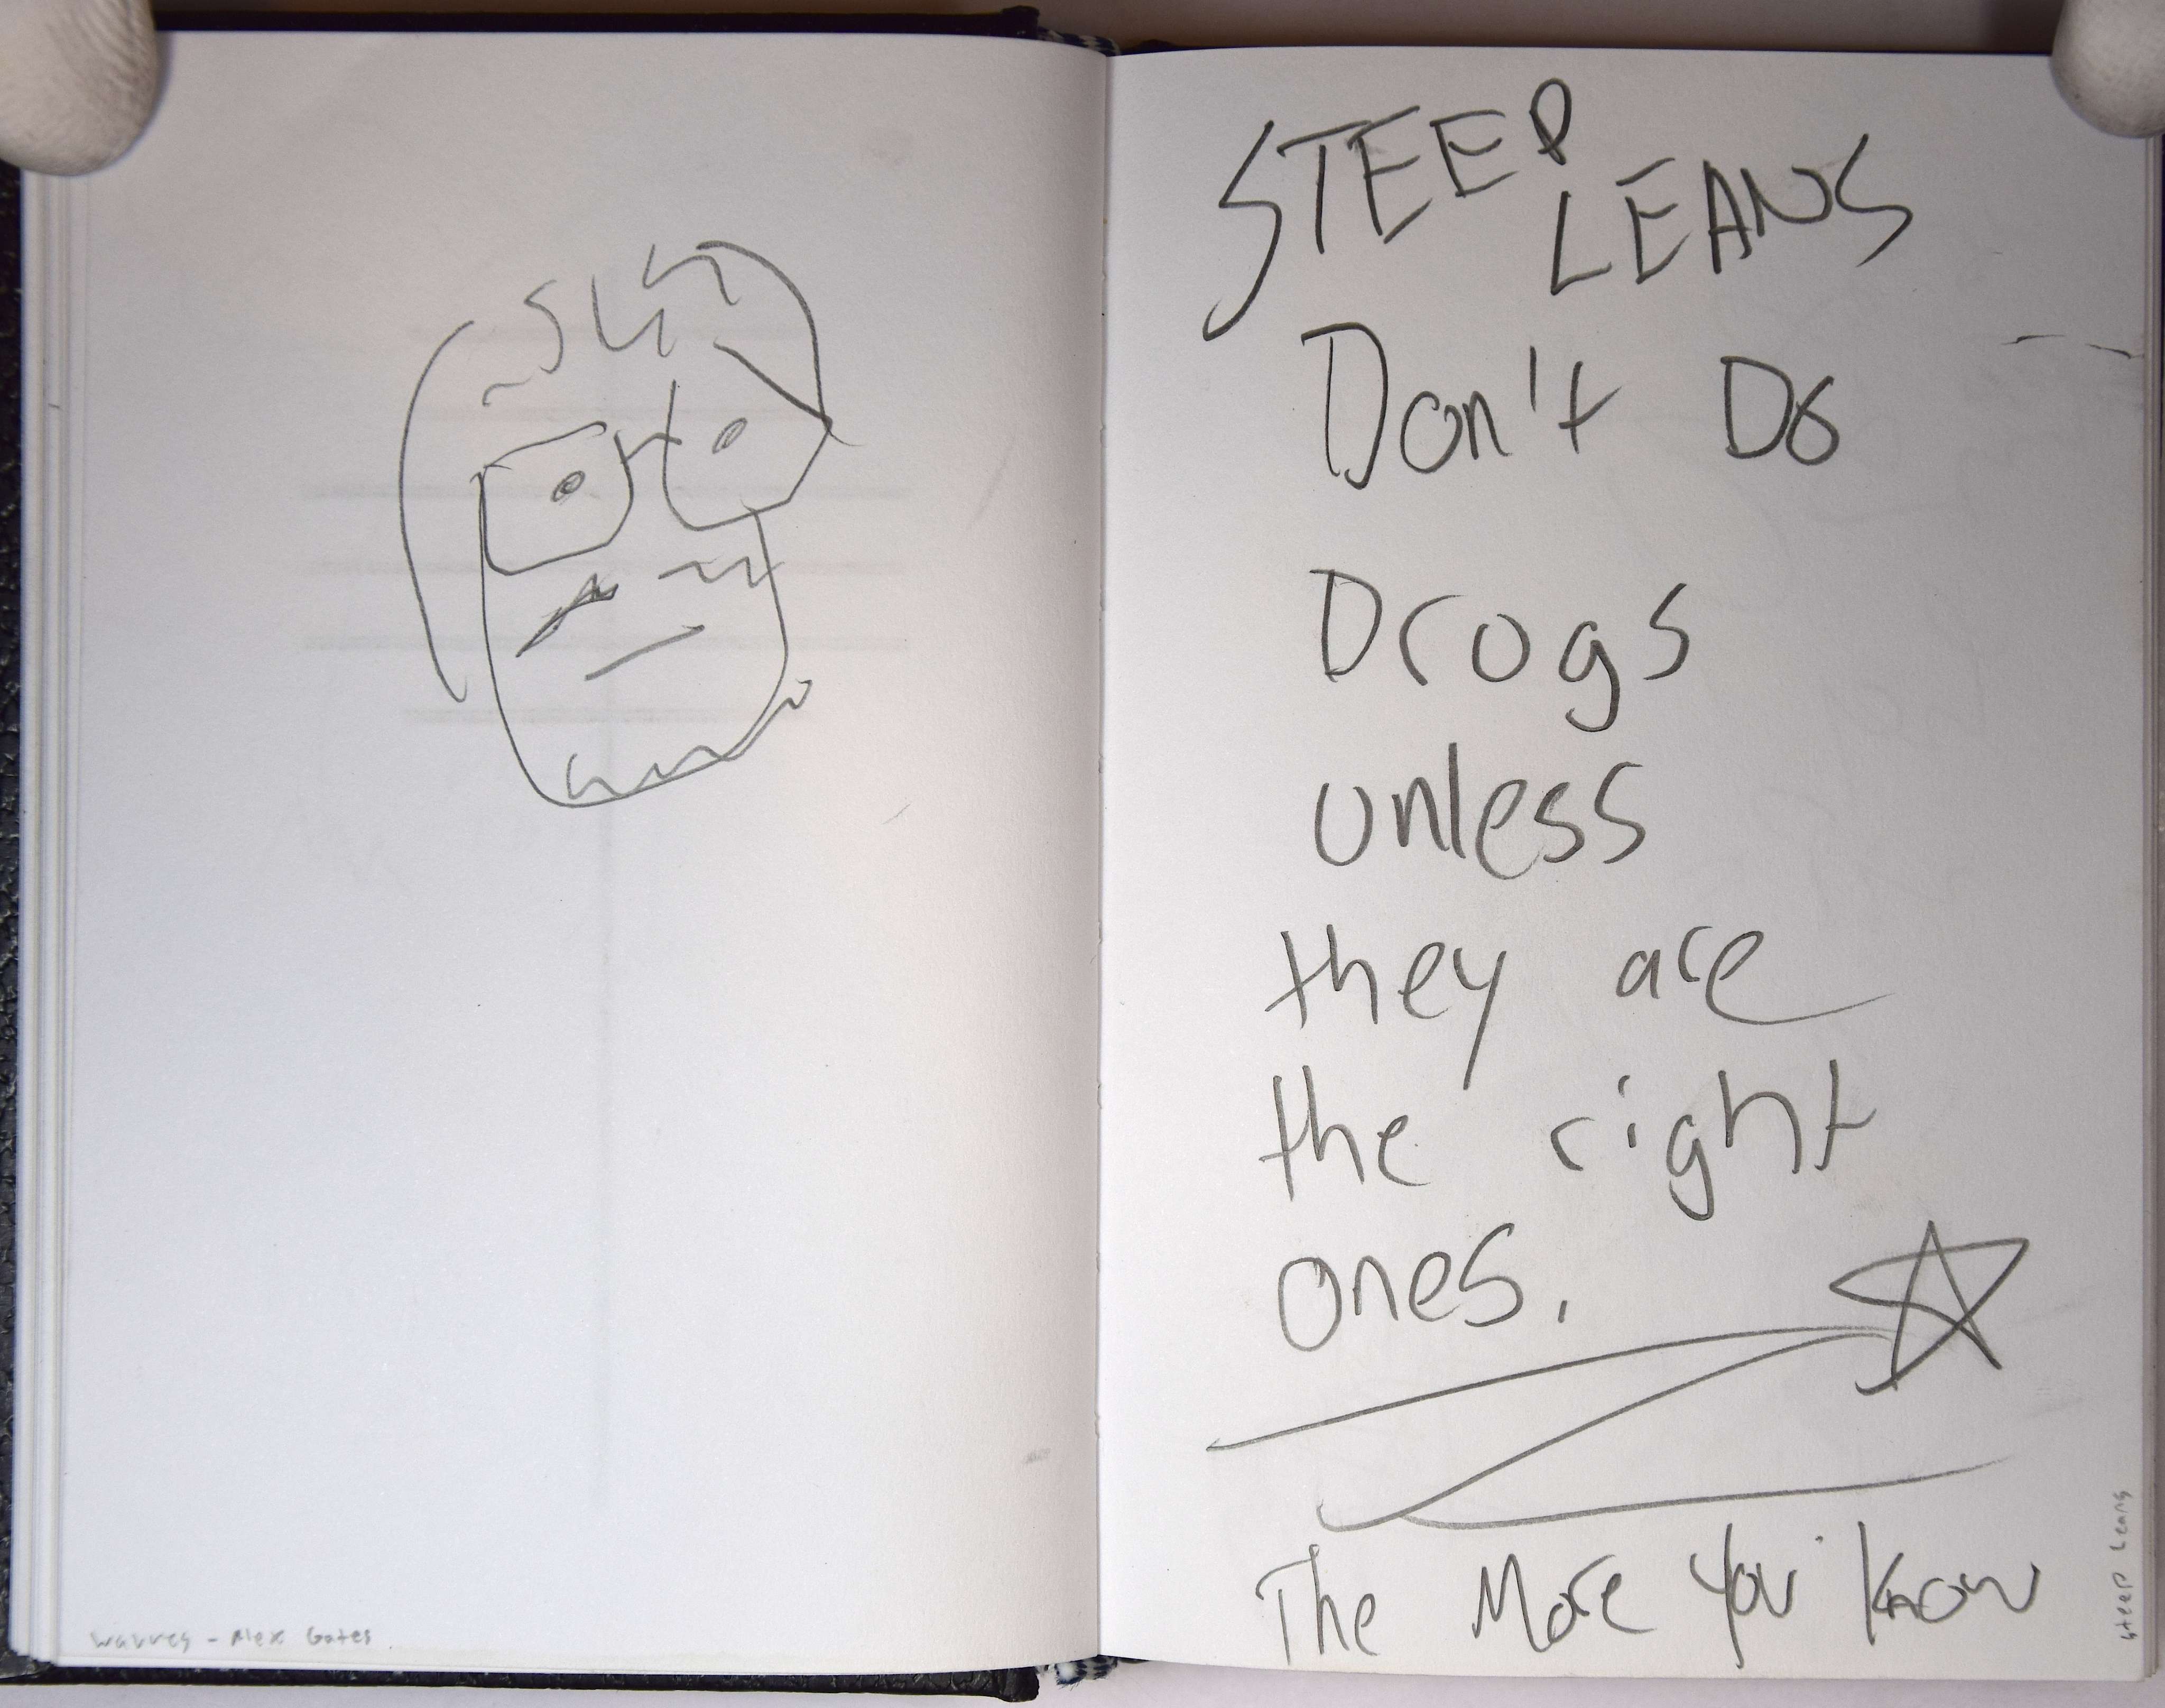 - Alex Gates
STEEP
LEANS
Don't Do
Drogs
unless
they are
the right
ones.
The More You Know
Steep Leans